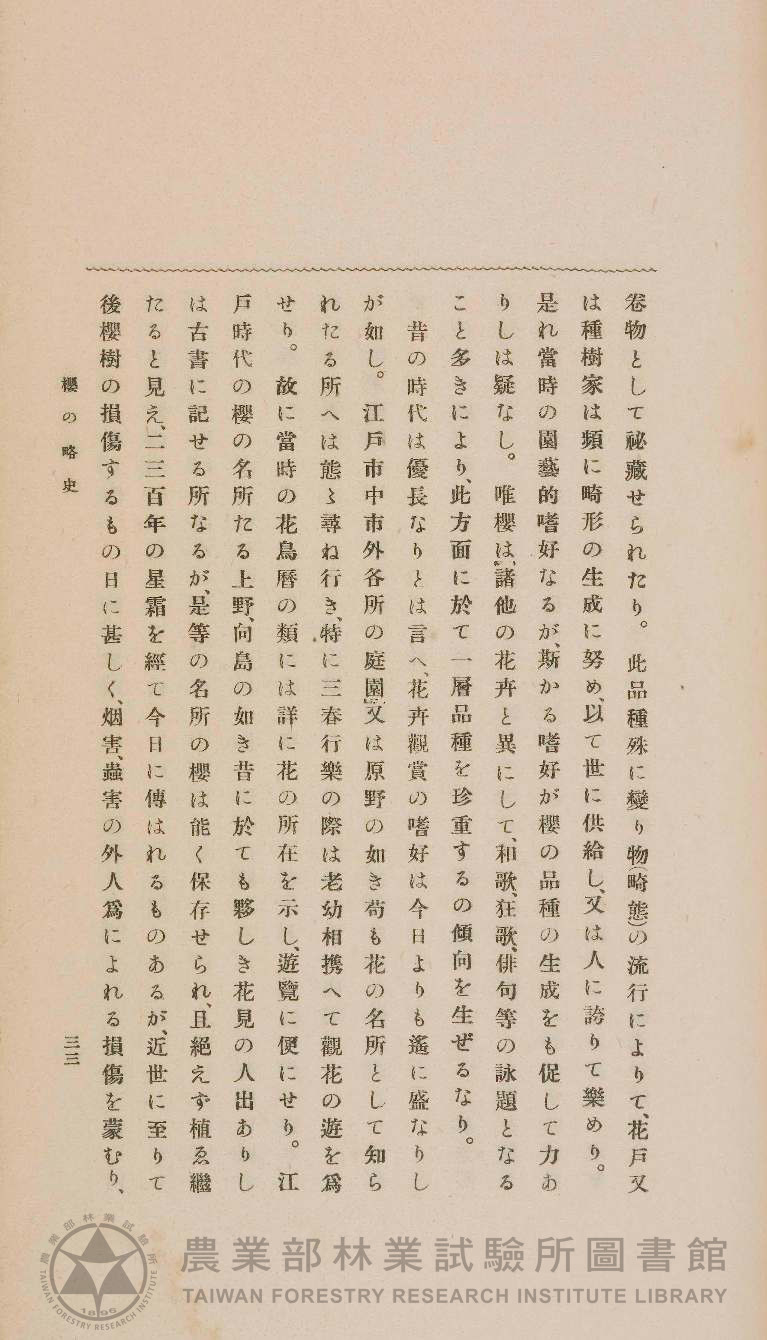 卷物として祕藏せられたり。此品種殊に變り物(畸態)の流行によりて、花戸又
は種樹家は頻に畸形の生成に努め、以て世に供給し、又は人に誇りて樂めり。
是れ當時の園藝的嗜好なるが、斯かる嗜好が櫻の品種の生成をも促して力あ
りしは疑なし。唯櫻は、諸他の花卉と異にして、和歌、狂歌、俳句等の詠題となる
こと多きにより、此方面に於て一層品種を珍重するの傾向を生ぜるなり。
昔の時代は優長なりとは言へ、花卉觀賞の嗜好は今日よりも遙に盛なりし
が如し。江戸市中市外各所の庭園、又は原野の如き苟も花の名所として知ら
れたる所へは態〻尋ね行き、特に三春行樂の際は老幼相携へて觀花の遊を爲
せり。故に當時の花鳥暦の類には詳に花の所在を示し、遊覽に便にせり。江
戸時代の櫻の名所たる上野、向島の如き昔に於ても夥しき花見の人出ありし
は古書に記せる所なるが、是等の名所の櫻は能く保存せられ、且絕えず植ゑ繼
たると見え、二三百年の星霜を經て今日に傳はれるものあるが、近世に至りて
後櫻樹の損傷するもの日に甚しく、烟害、蟲害の外人爲によれる損傷を蒙むり、
櫻の略史
三三
農業部林業試驗所圖書館
TAIWAN FORESTRY RESEARCH INSTITUTE LIBRARY
農業部林業試驗所
TAIWAN FORESTRY RESEARCH INSTITUTE
1896